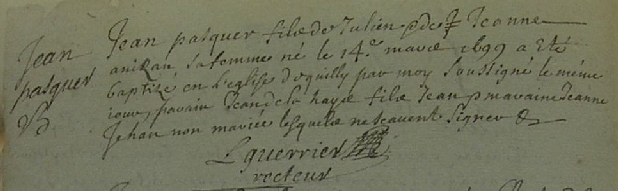 Jean
pasquer
Jean pasquer fils de Julien & de Jeanne
sa femme né le 14.e mars 1699 a eté
baptizé en l'eglise d'quilly par moy soussigné le même
iour, parain Jean de la haye fils Jean maraine Jeanne
Jehan non mariée lesquels ne scavent signer &
Lguerrier
recteur